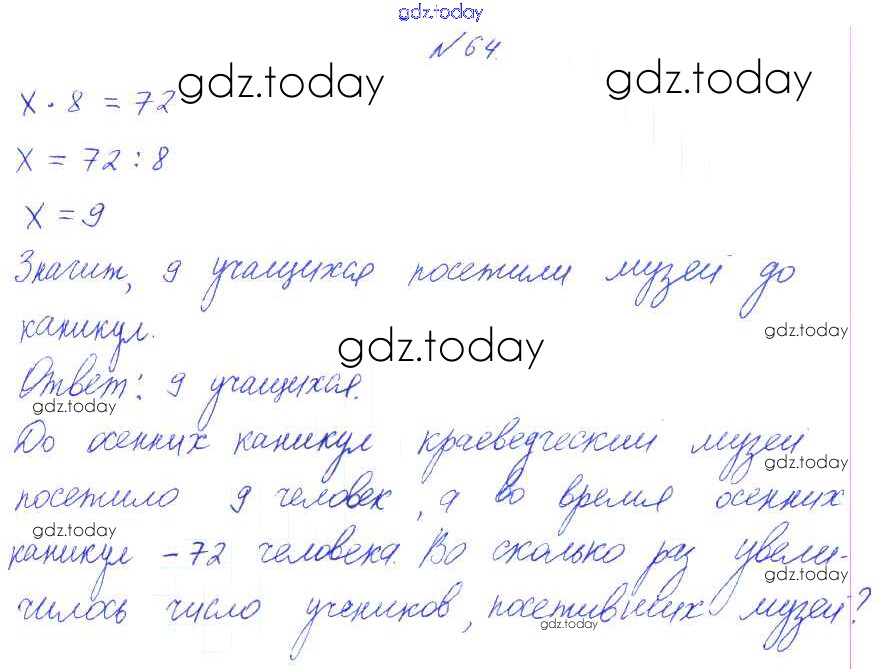 gdz.today
№ 64.
gdz.today gdz.today
x · 8 = 72
x = 72 : 8
x = 9
Значит, 9 учащихся посетили музей до
каникул.
gdz.today
gdz.today
Ответ: 9 учащихся.
gdz.today
До осенних каникул краеведческий музей
gdz.today
посетило 9 человек, а во время осенних
gdz.today
каникул – 72 человека. Во сколько раз увели-
gdz.today
чилось число учеников, посетивших музей?
gdz.today